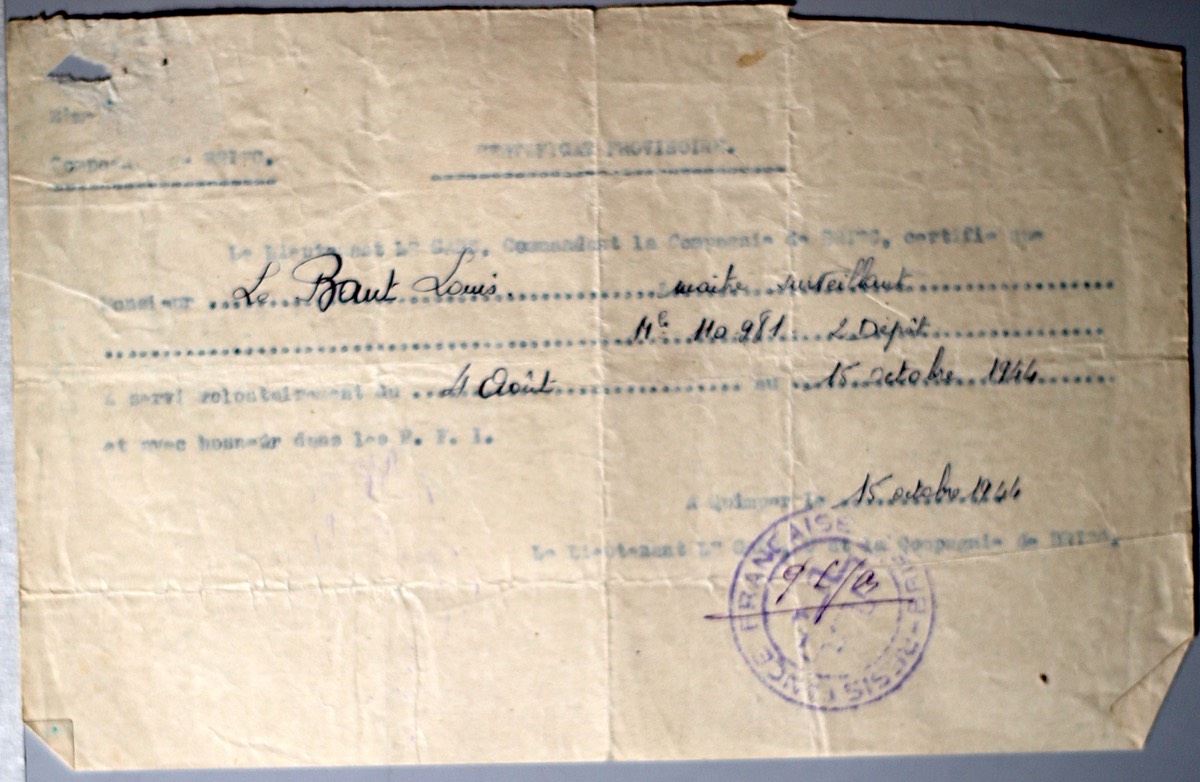 BRIEC.
CERTIFICAT PROVISOIRE.
Le Lieutenant LE Commandant la Compagnie de BRIEC, certifie que
Monsieur Le Baut Louis. maître surveillant
Mle 110981 2 Dépôt
A servi volontairement du 4 Août au 15 octobre 1944
et avec honneur dans les F. F. I.
A Quimper le 15 octobre 1944
Le Lieutenant LE la Compagnie de BRIEC.
RESISTANCE FRANÇAISE